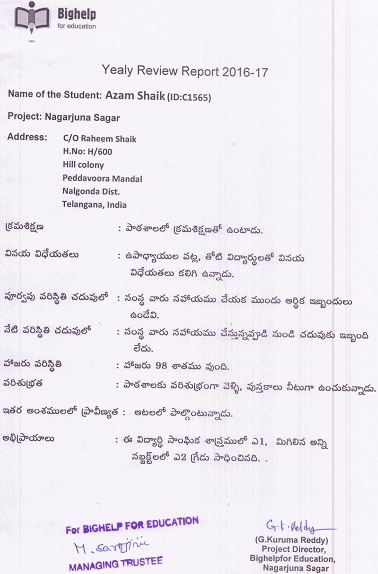 Bighelp
for education
Yealy Review Report 2016-17
Name of the Student: Azam Shaik (ID:C1565)
Project: Nagarjuna Sagar
Address: C/O Raheem Shaik
H.No: H/600
Hill colony
Peddavoora Mandal
Nalgonda Dist.
Telangana, India
క్రమశిక్షణ : పాఠశాలలో క్రమశిక్షణతో ఉంటాడు.
వినయ విధేయతలు : ఉపాధ్యాయుల పట్ల, తోటి విద్యార్థులతో వినయ
విధేయతలు కలిగి ఉన్నాడు.
పూర్వపు పరిస్థితి చదువులో : సంస్థ వారు సహాయము చేయక ముందు ఆర్థిక ఇబ్బందులు
ఉండేవి.
నేటి పరిస్థితి చదువులో : సంస్థ వారు సహాయము చేస్తున్నప్పటి నుండి చదువుకు ఇబ్బంది
లేదు.
హాజరు పరిస్థితి : హాజరు 98 శాతము వుంది.
పరిశుభ్రత : పాఠశాలకు పరిశుభ్రంగా వెళ్ళి, పుస్తకాలు నీటుగా ఉంచుకున్నాడు.
ఇతర అంశములలో ప్రావీణ్యత : ఆటలలో పాల్గొంటున్నాడు.
అభిప్రాయాలు : ఈ విద్యార్థి సాంఘిక శాస్త్రములో ఎ1, మిగిలిన అన్ని
సబ్జెక్ట్‌లలో ఎ2 గ్రేడు సాధించినది. .
For BIGHELP FOR EDUCATION
M. Sarojini
MANAGING TRUSTEE
G.K. Reddy
(G.Kuruma Reddy)
Project Director,
Bighelpfor Education,
Nagarjuna Sagar